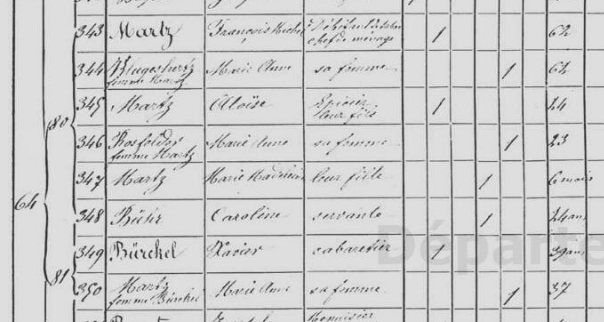 343 Martz François Michel Débitant de tabac 1 62
chef de ménage
344 Blugeshertz Marie Anne sa femme 1 62
femme Martz
80
345 Martz Aloïse Epicier 1 24
leur fils
346 Rosfelder Marie Anne sa femme 1 23
femme Martz
347 Martz Marie Madeleine leur fille 1 6 mois
64
348 Bühr Caroline servante 1 24 ans
349 Bürckel Xavier cabaretier 1 39 ans
81
350 Martz Marie Anne sa femme 1 37
femme Bürckel
Menuisier
Départe